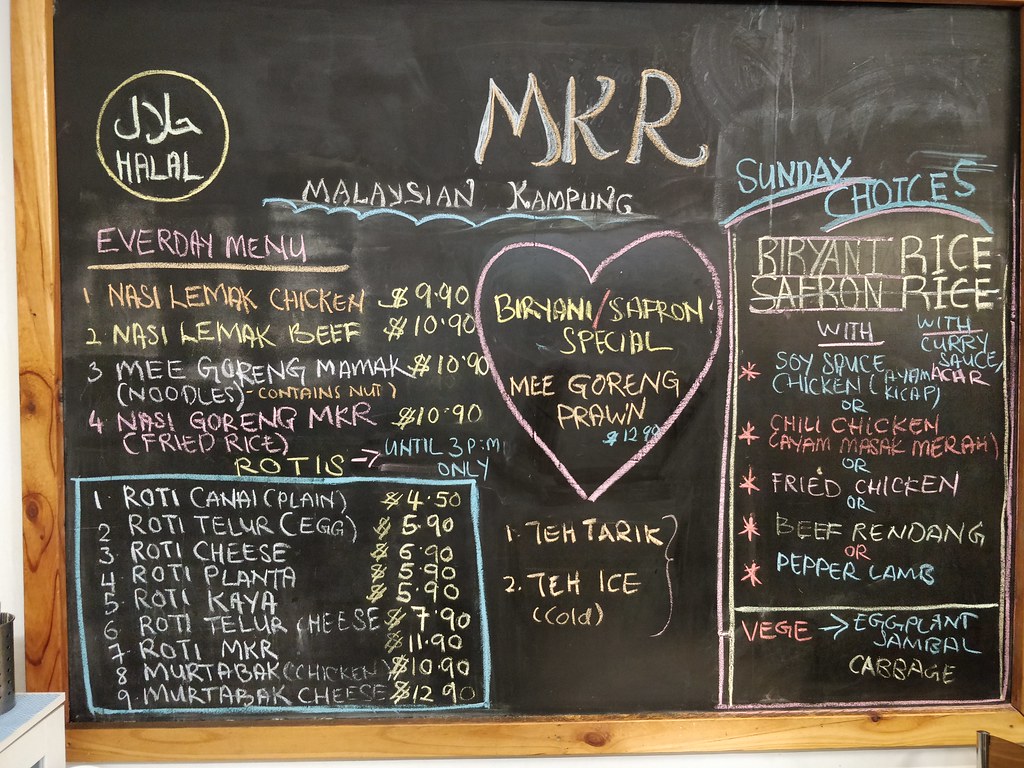 حلال
HALAL
MKR
MALAYSIAN KAMPUNG
EVERDAY MENU
1 NASI LEMAK CHICKEN $9.90
2 NASI LEMAK BEEF $10.90
3 MEE GORENG MAMAK $10.90
(NOODLES) - CONTAINS NUT)
4 NASI GORENG MKR $10.90
(FRIED RICE)
ROTIS → UNTIL 3P:M
ONLY
1 ROTI CANAI (PLAIN) $4.50
2 ROTI TELUR (EGG) $5.90
3 ROTI CHEESE $6.90
4 ROTI PLANTA $5.90
5 ROTI KAYA $5.90
6 ROTI TELUR CHEESE $7.90
7 ROTI MKR $11.90
8 MURTABAK (CHICKEN) $10.90
9 MURTABAK CHEESE $12.90
BIRYANI/SAFRON
SPECIAL
MEE GORENG
PRAWN
$12.90
1. TEH TARIK
2. TEH ICE
(Cold)
SUNDAY
CHOICES
BIRYANI RICE
SAFRON RICE
WITH
WITH
CURRY
SAUCE,
ACAR
* SOY SAUCE
CHICKEN (AYAM
KICAP)
OR
* CHILI CHICKEN
(AYAM MASAK MERAH)
OR
* FRIED CHICKEN
OR
* BEEF RENDANG
OR
* PEPPER LAMB
VEGE → EGGPLANT
SAMBAL
CABBAGE